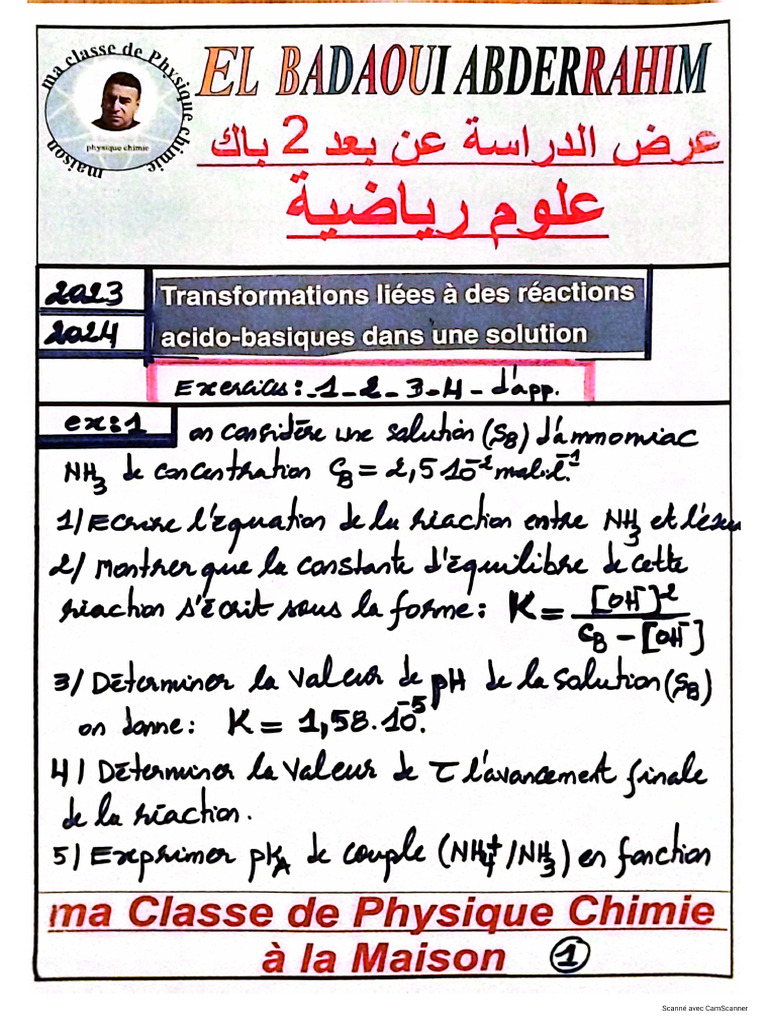 ma classe de Physique chimie maison
physique chimie
EL BADAOUI ABDERRAHIM
عرض الدراسة عن بعد 2 باك
علوم رياضية
2023
2024
Transformations liées à des réactions
acido-basiques dans une solution
Exercices:-1-2-3-4-d'app.
ex:1
on considère une solution (S_B) d'ammomiac
NH₃ de concentration C_B = 2,5 10⁻² mol.l⁻¹.
1/ Ecrire l'équation de la réaction entre NH₃ et l'eau
2/ Montrer que la constante d'équilibre de cette
réaction s'écrit sous la forme: K = [OH⁻]² / C_B - [OH⁻]
3/ Déterminer la valeur de pH de la solution (S_B)
on donne: K = 1,58.10⁻⁵.
4/ Déterminer la valeur de τ l'avancement finale
de la réaction.
5/ Exprimer pK_A de couple (NH₄⁺/NH₃) en fonction
ma Classe de Physique Chimie
à la Maison 1
Scanné avec CamScanner